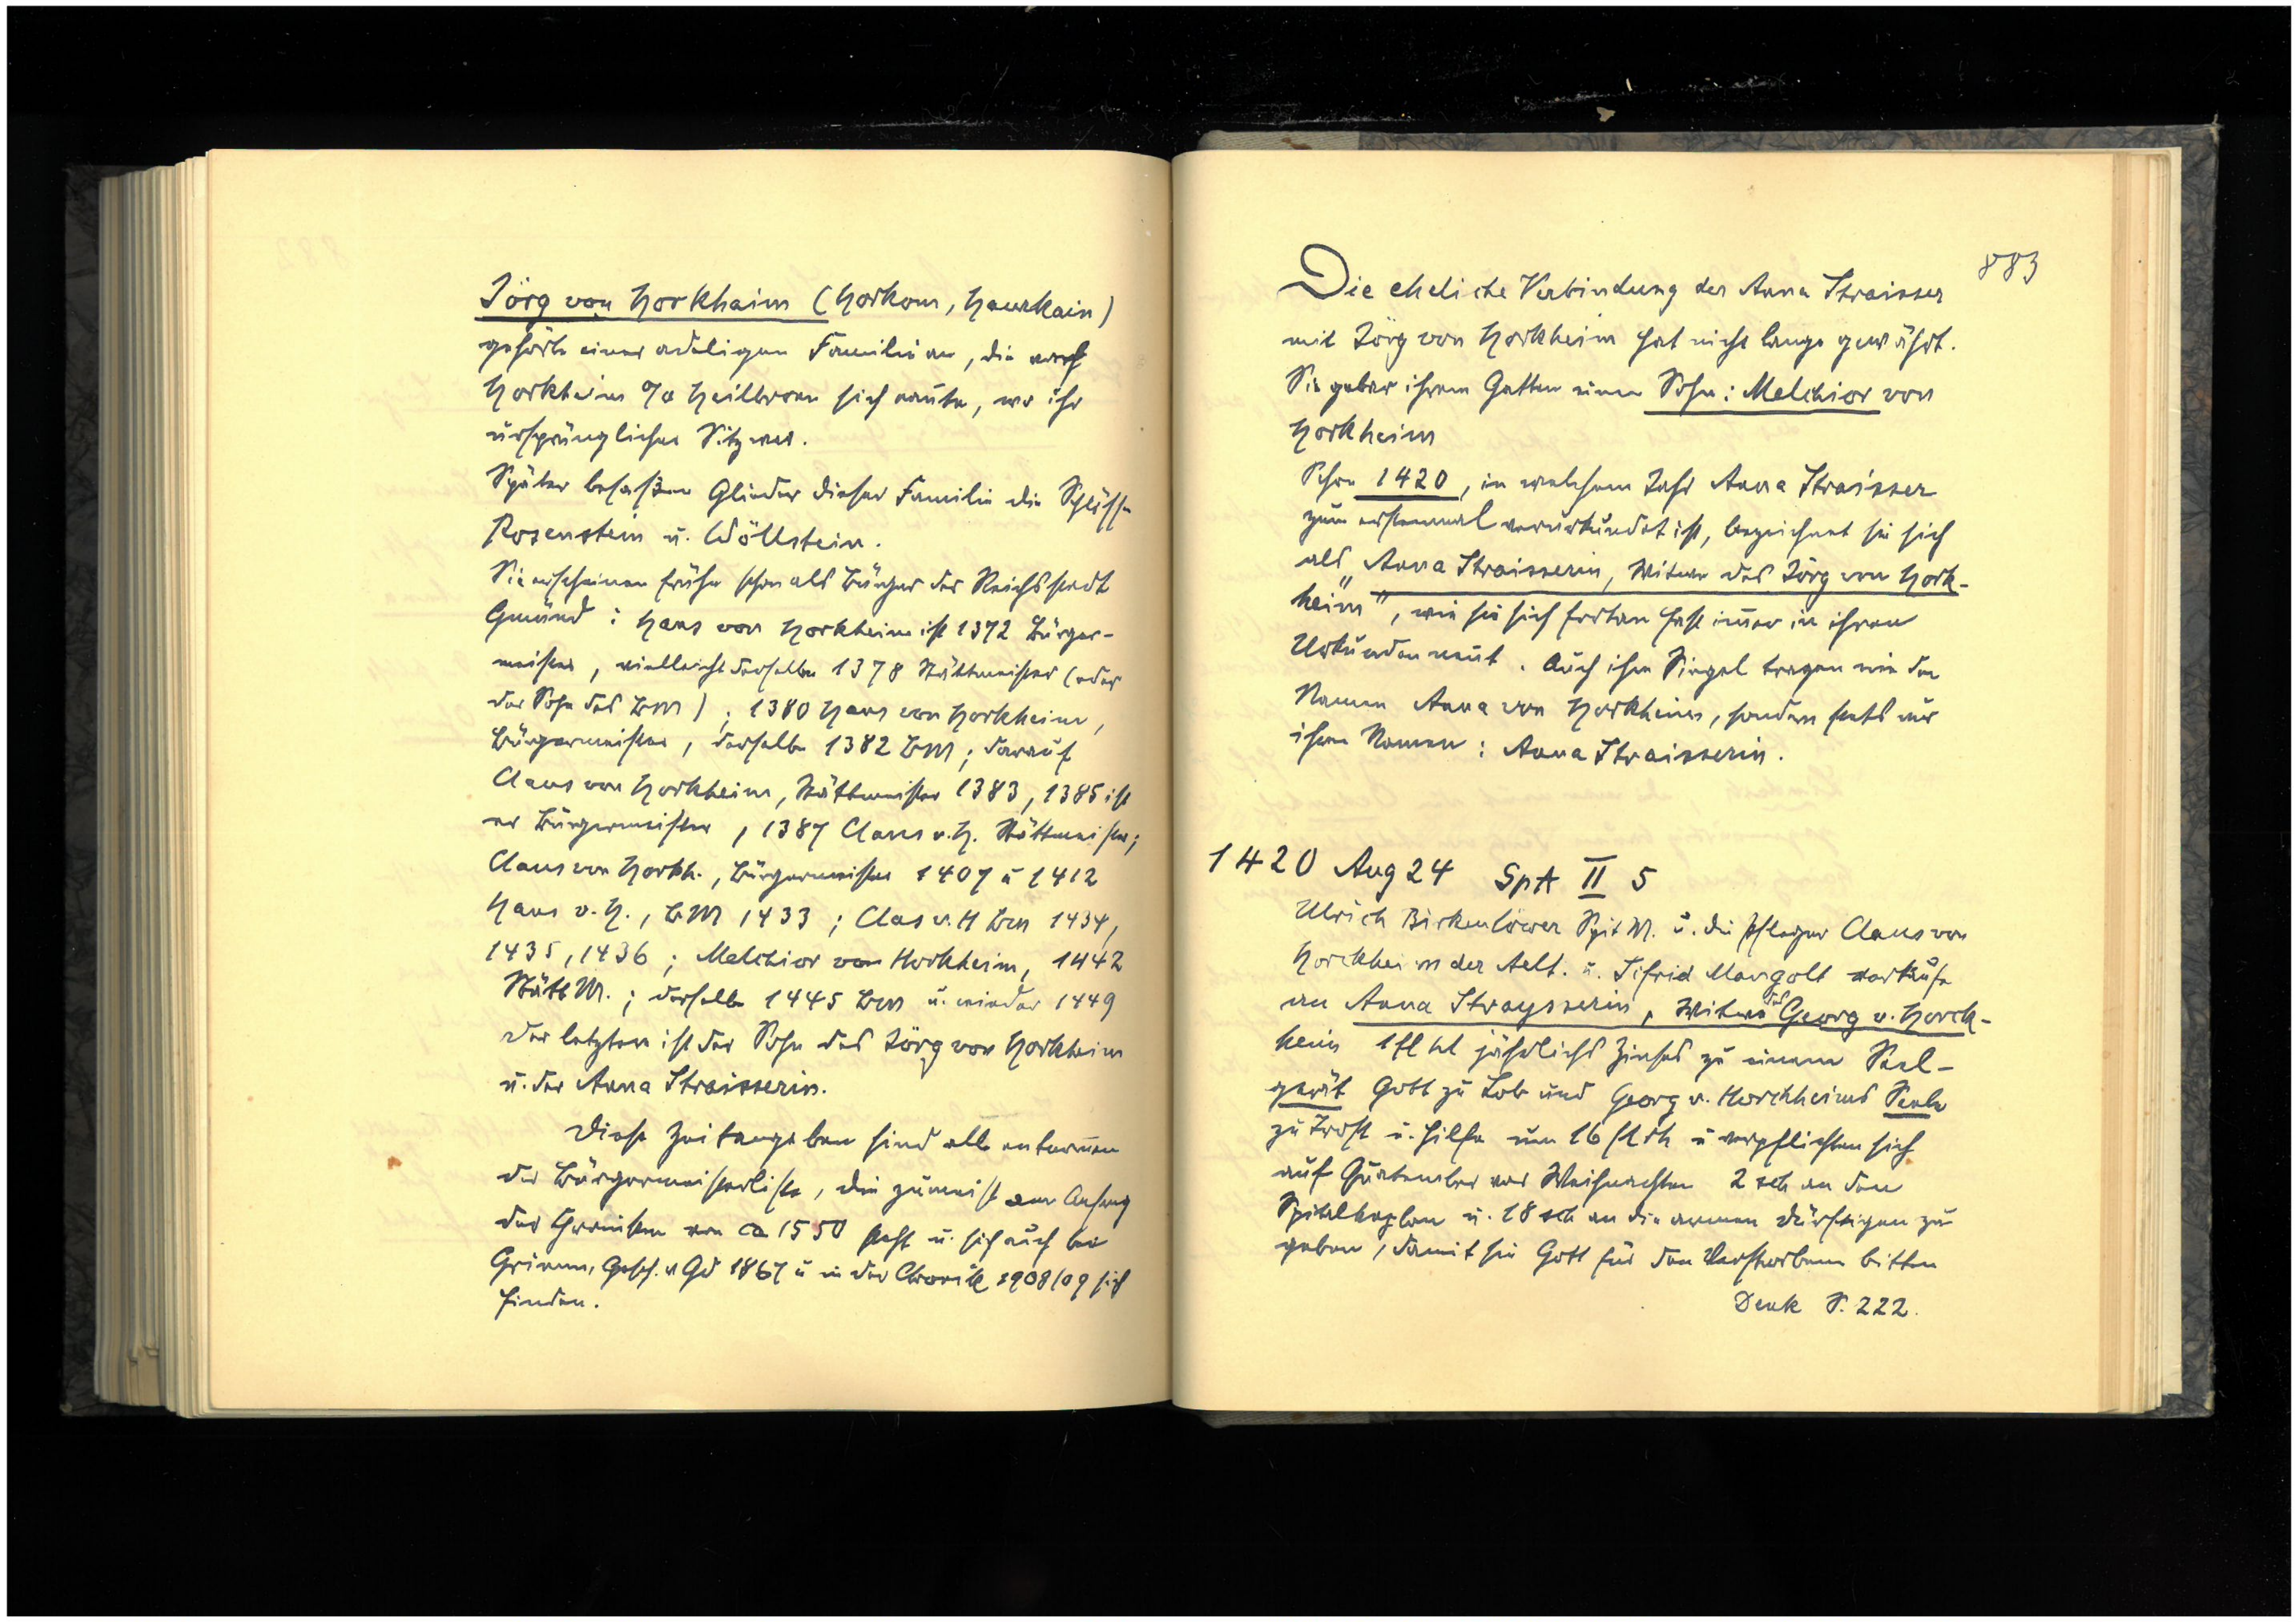 Jörg von Horkhaim (Horkom, Haurkain)
gehörte einer adeligen Familie an, die nach
Horkheim O/A Heilbronn sich nannte, wo ihr
ursprünglicher Sitz war.
Später besaßen Glieder dieser Familie die Schlösser
Rosenstein u. Wöllstein.
Sie erscheinen früher schon als Bürger der Reichsstadt
Gmünd: Hans von Horkheim ist 1372 Bürger-
meister, vielleicht derselbe 1378 Stättmeister (oder
der Sohn des BM); 1380 Hans von Horkheim,
Bürgermeister, derselbe 1382 BM; darauf
Claus von Horkheim, Stättmeister 1383, 1385 ist
er Bürgermeister, 1387 Claus v. H. Stättmeister;
Claus von Horkh., Bürgermeister 1407 u 1412
Hans v. H., BM 1433; Clas v. H BM 1434,
1435, 1436; Melchior von Horkheim, 1442
StättM.; derselbe 1445 BM u. wieder 1449
der letztere ist der Sohn des Jörg von Horkheim
u. der Anna Straisserin.
Diese Zeitangaben sind alle entnommen
der Bürgermeisterliste, die zumeist am Anfang
der Chroniken von ca 1550 steht u. sich auch bei
Grimm, Gesch. v Gd 1867 u in der Chronik 1908/09 sich
finden.
883
Die eheliche Verbindung der Anna Straisser
mit Jörg von Horkheim hat nicht lange gewährt.
Sie gebar ihrem Gatten einen Sohn: Melchior von
Horkheim
Schon 1420, in welchem Jahr Anna Straisser
zum erstenmal verurkundet ist, bezeichnet sie sich
als „Anna Straisserin, Witwe des Jörg von Hork-
heim", wie sie sich fortan fast immer in ihren
Urkunden nennt. Auch ihre Siegel tragen nie den
Namen Anna von Horkheim, sondern stets nur
ihren Namen: Anna Straisserin.
1420 Aug 24 SpA II 5
Ulrich Birkenlöwer SpitM. u. die Pfleger Claus von
Horckheim der Aelt. u. Sifrid Mangolt verkaufen
an Anna Straysserin, Witwe des Georg v. Horck-
heim 1 fl hl jährlichs Zinses zu einem Seel-
gerät Gott zu Lob und Georg v. Horckheims Seele
zu Trost u. Hilfe um 16 fl rh u verpflichten sich
auf Quatember vor Weihnachten 2 sch an den
Spitalkaplan u. 18 sch an die armen Dürftigen zu
geben, damit sie Gott für den Verstorbenen bitten
Denk S. 222.